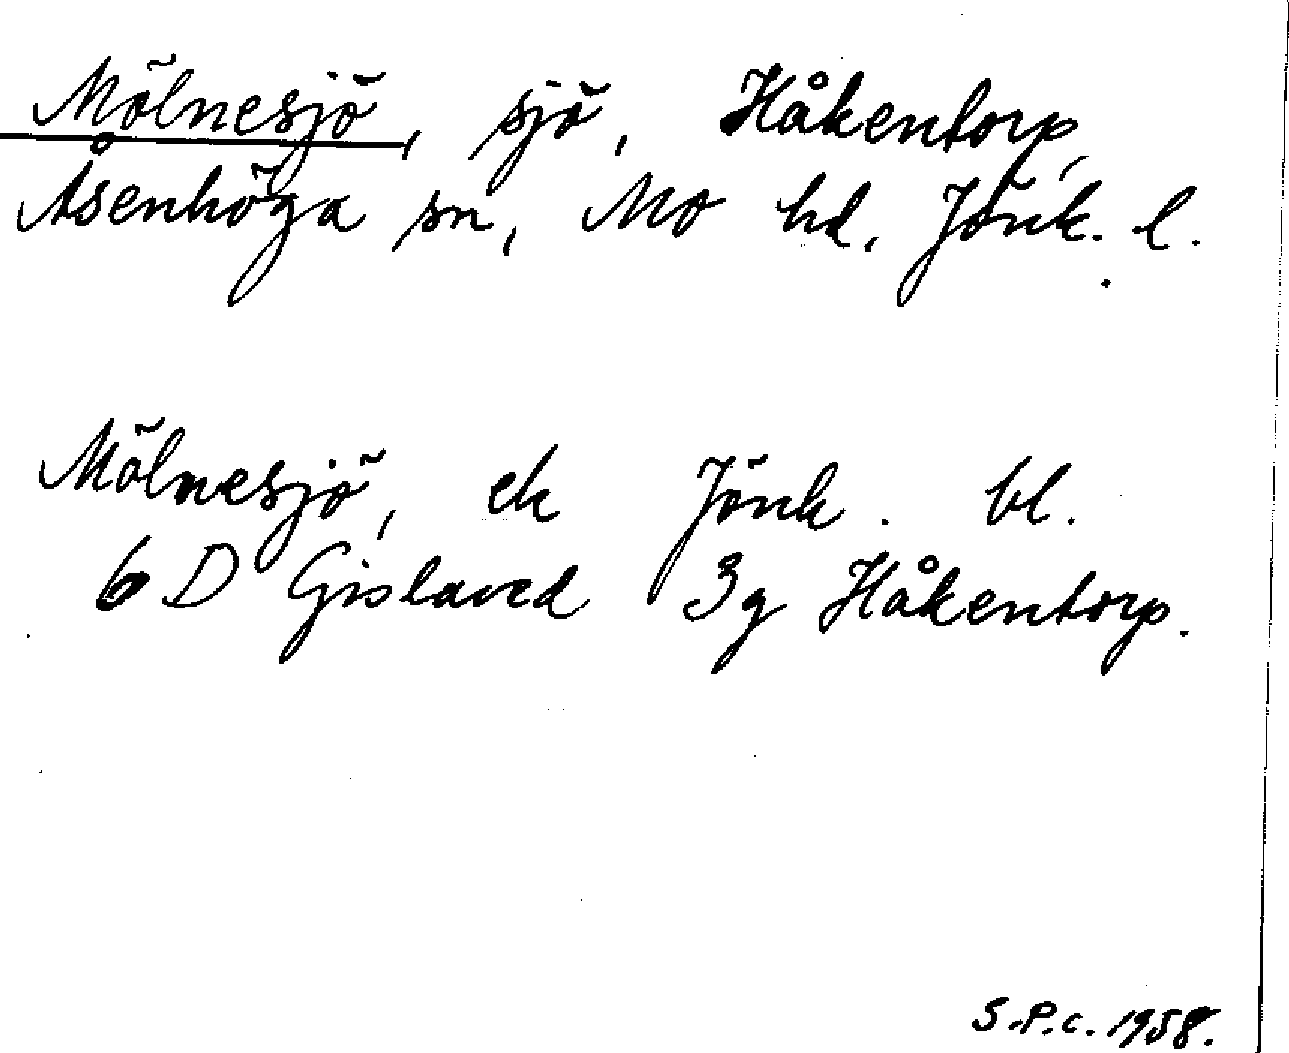 Mölnesjö, sjö, Håkentorp,
Åsenhöga sn, Mo hd, Jönk. l.
Mölnesjö, ek Jönk. bl.
6 D Gislaved 3g Håkentorp.
S.P.C. 1958.